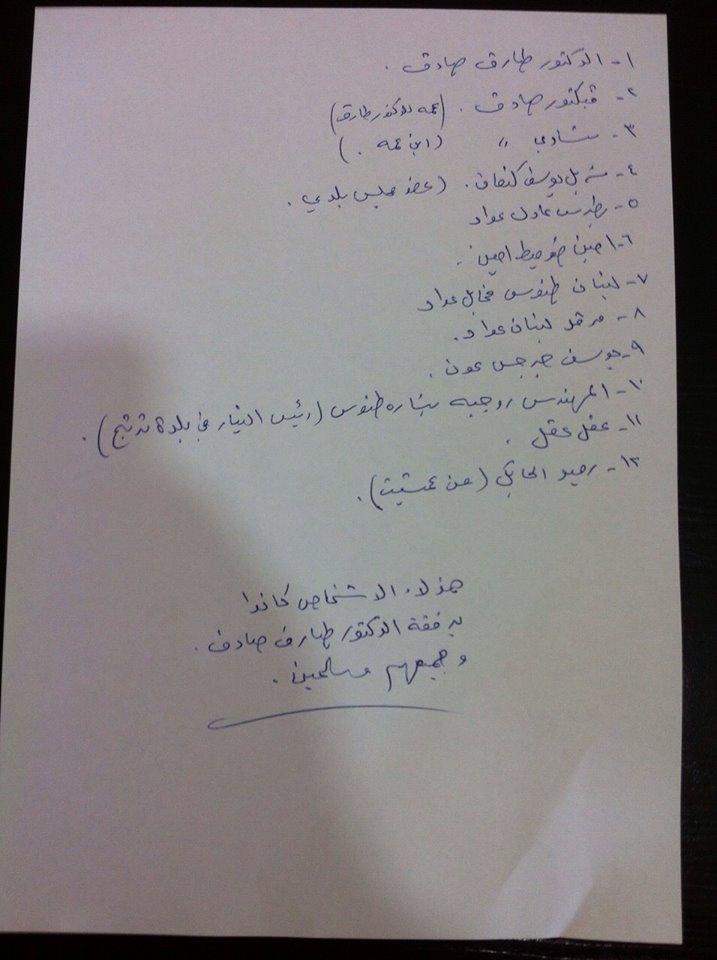 ١- الدكتور طارق صادق .
٢- ڤيكتور صادق . (عمه للدكتور طارق)
٣- شادي " (ابن عمه .)
٤- شربل يوسف كنعان . (عضو مجلس بلدي .
٥- بطرس عادل عواد
٦- امين ضوميط امين .
٧- لبنان طنوس مخايل عواد
٨- مرقد لبنان عواد .
٩- يوسف جرجس عون .
١٠- المهندس روجيه بشاره طنوس (رئيس التيار في بلدة ترتج) .
١١- عقل عقل .
١٢- رميو الحايك (من عمشيت) .
هؤلاء الاشخاص كانوا
برفقة الدكتور طارق صادق .
وجميعهم مسلحين .